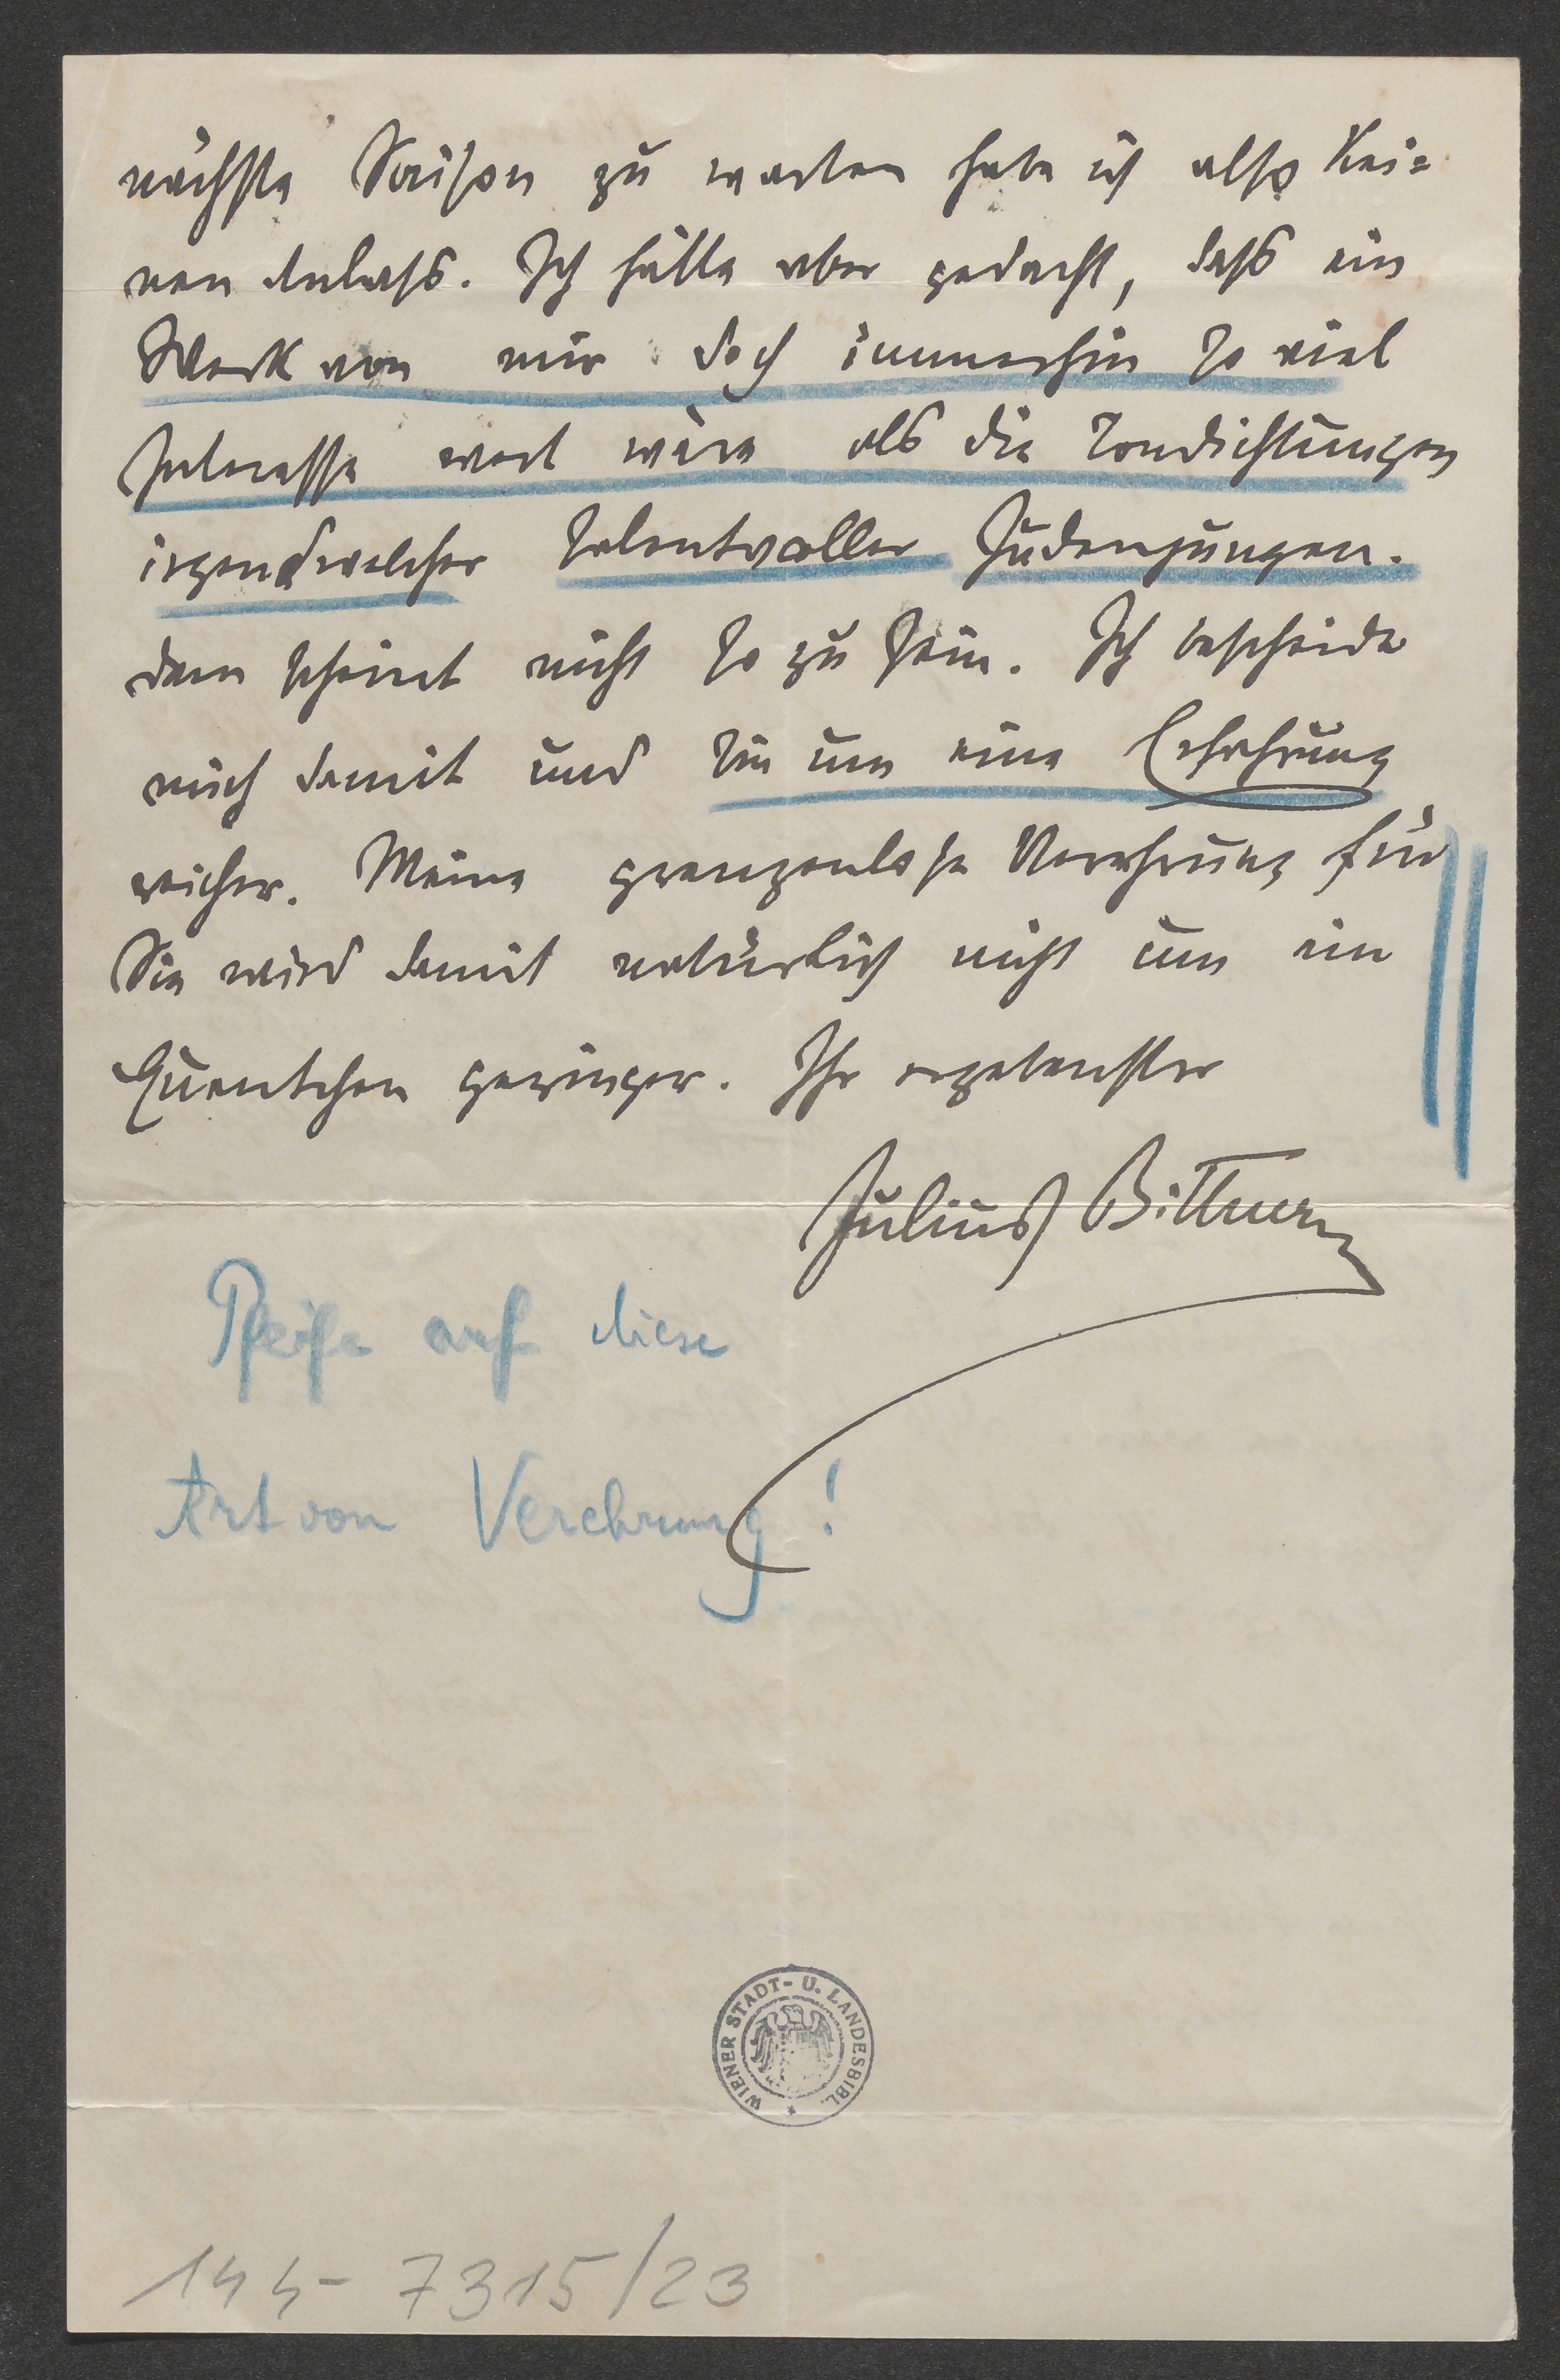 nächste Saison zu warten habe ich also kei=
nen Anlass. Ich hätte aber gedacht, dass ein
Werk von mir doch immerhin so viel
Interesse wert wäre als die Tondichtungen
irgendwelcher talentvoller Judenjungen.
dem scheint nicht so zu sein. Ich bescheide
mich damit und bin um eine Erfahrung
reicher. Meine grenzenlose Verehrung für
Sie wird damit natürlich nicht um ein
Quentchen geringer. Ihr ergebenster
Julius Bittner
Pfeife auf diese
Art von Verehrung!
WIENER STADT- U. LANDESBIBL.
144- 7315/23